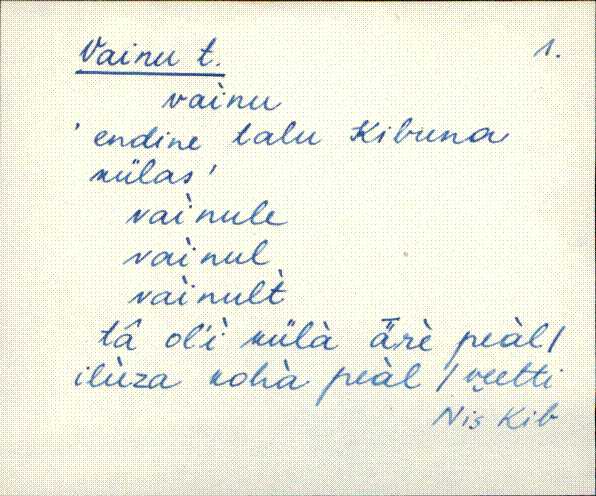 Vainu t. 1.
vaìnu
' endine talu Kibuna
külas '
vaìnule
vaìnul
vaìnult̀
tâ ol'ì külà ǟrè peàl /
ilùza kohà peàl / veetti
Nis Kib